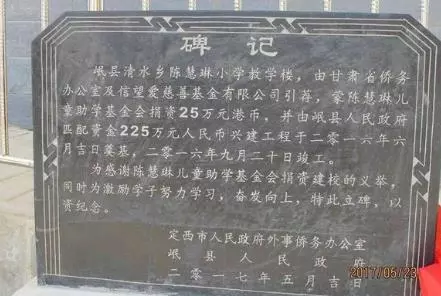 碑记
岷县清水乡陈慧琳小学教学楼，由甘肃省侨务
办公室及信望爱慈善基金有限公司引荐，蒙陈慧琳儿
童助学基金会捐资25万元港币，并由岷县人民政府
匹配资金225万元人民币兴建工程于二零一六年六
月吉日奠基，二零一六年九月二十日竣工。
为感谢陈慧琳儿童助学基金会捐资建校的义举，
同时为激励学子努力学习，奋发向上，特此立碑，以
资纪念。
定西市人民政府外事侨务办公室
岷县人民政府
二零一七年五月吉日
2017/05/23